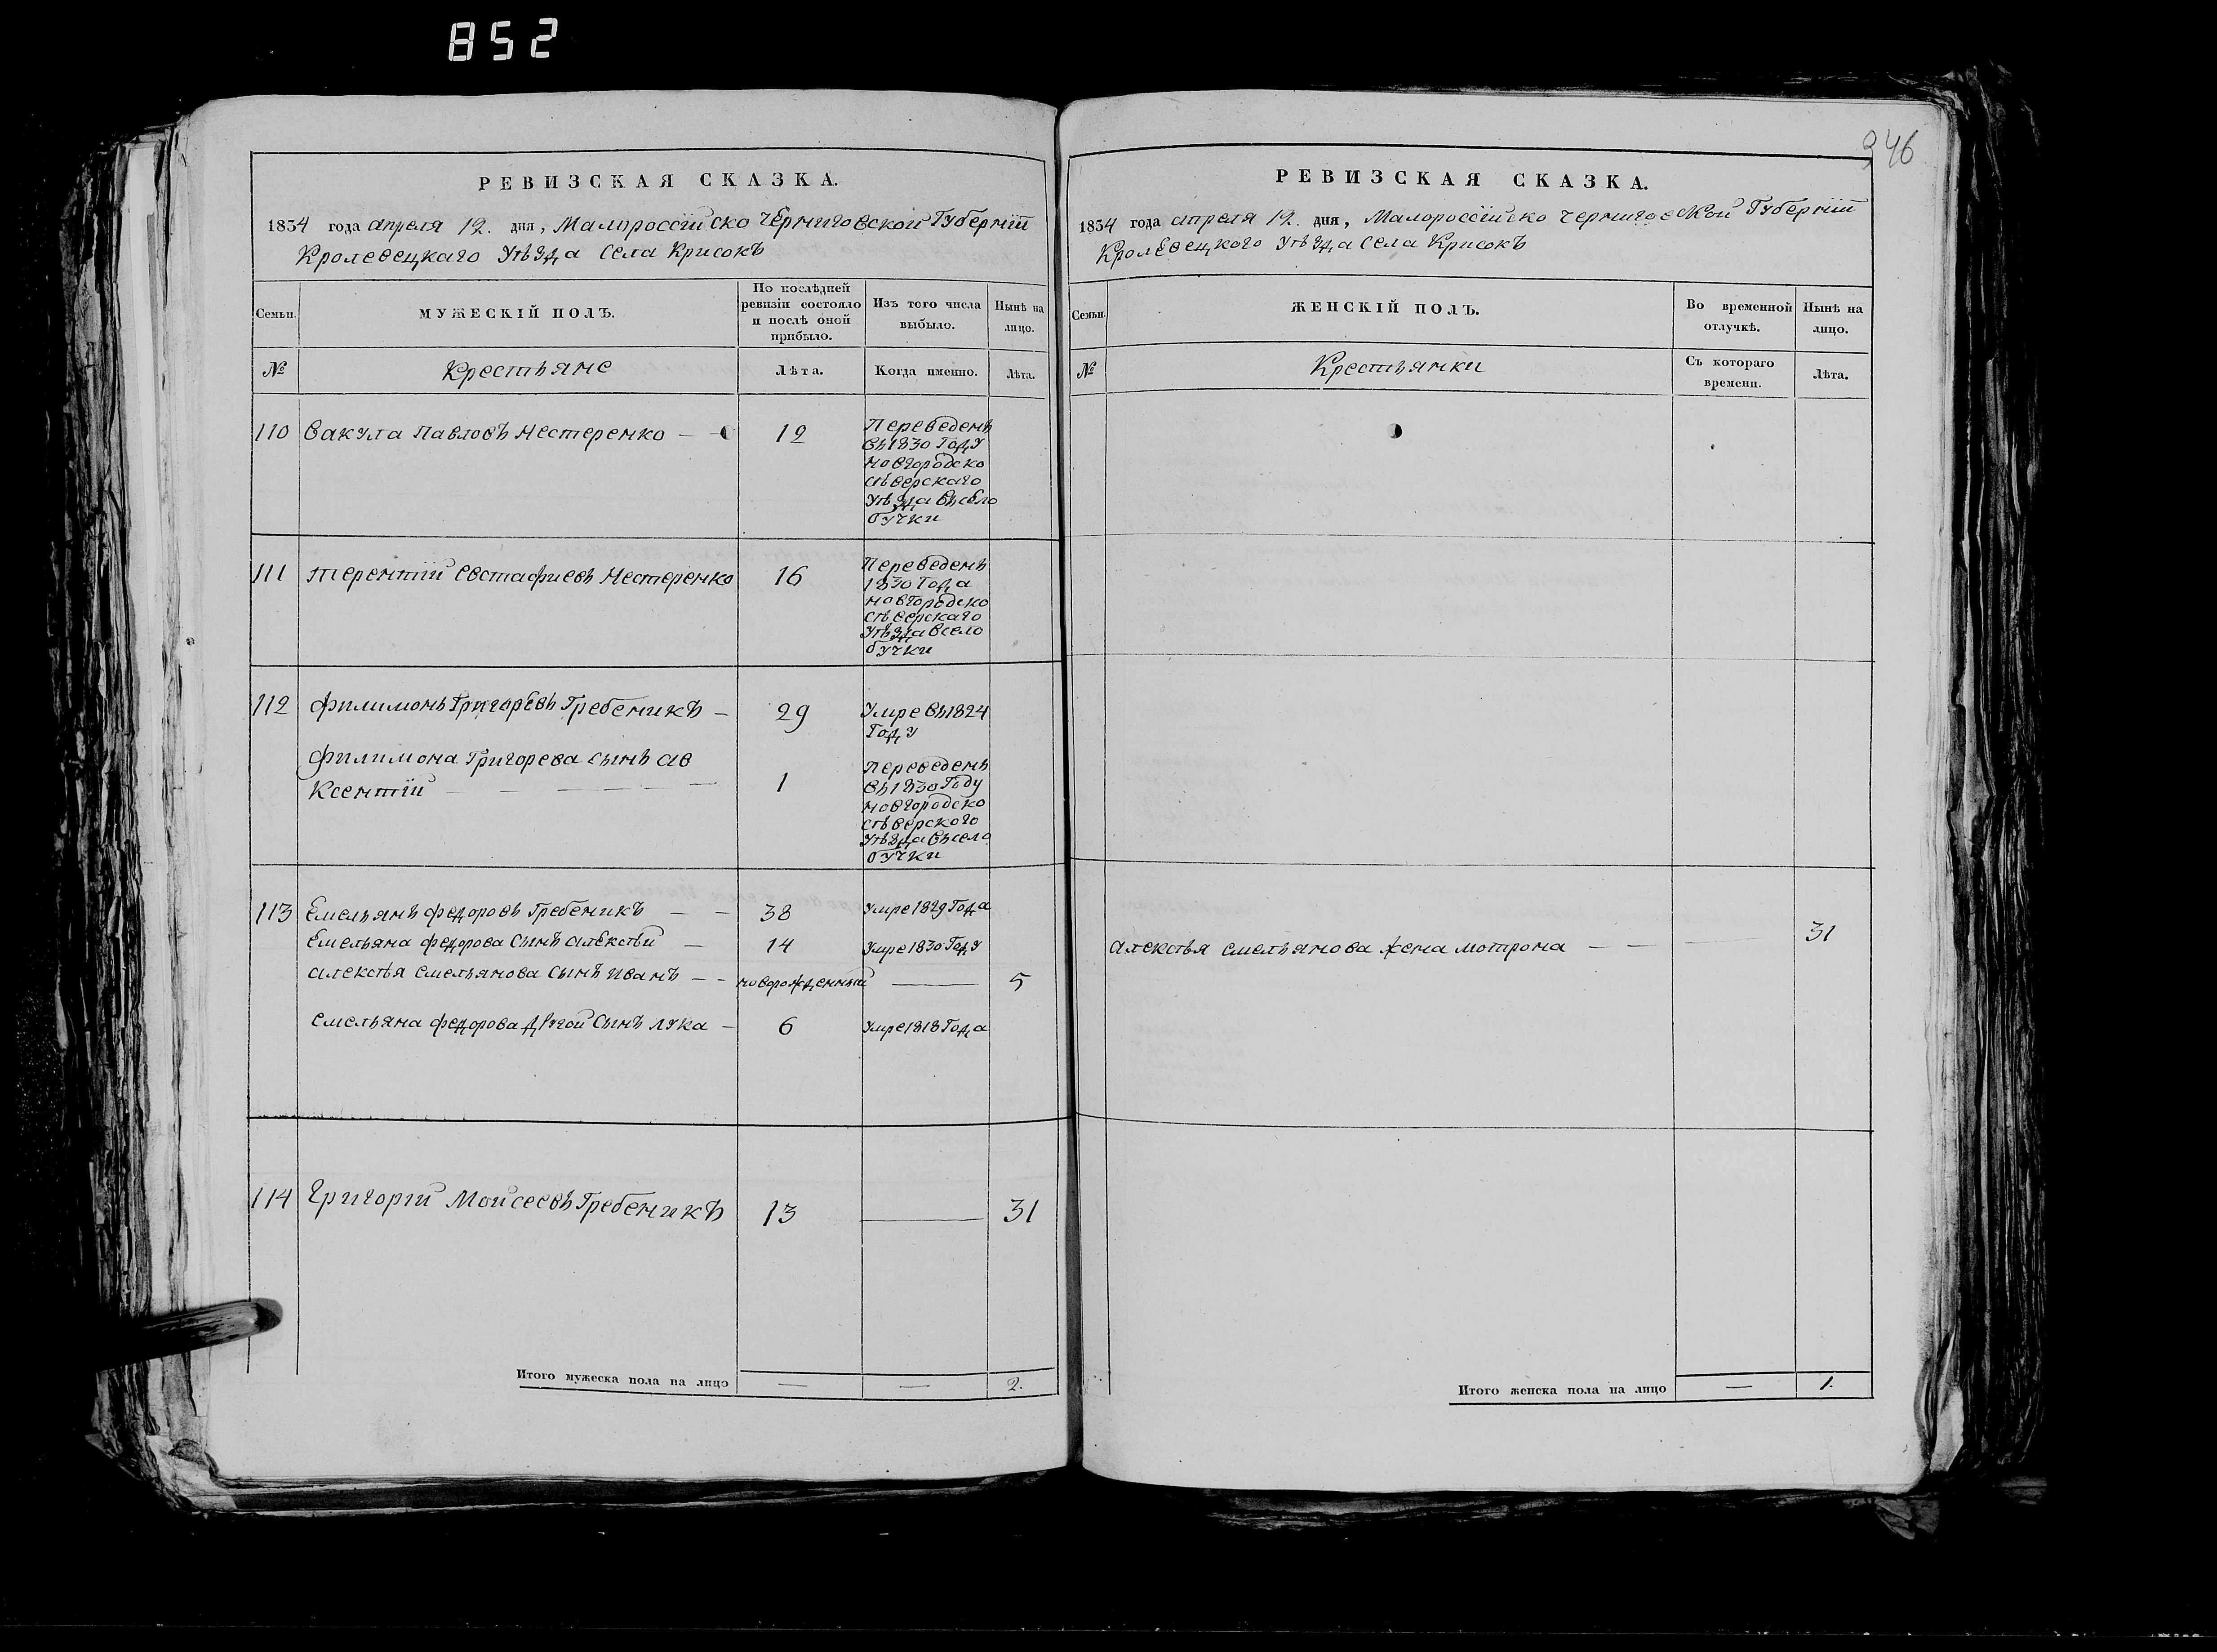 852
346
РЕВИЗСКАЯ СКАЗКА.
1834 года апреля 12. дня, Малороссійско Черниговской Губерніи
Кролевецкаго Уѣзда Села Крисокъ
Семьи.
МУЖЕСКІЙ ПОЛЪ.
По послѣдней ревизіи состояло и послѣ оной прибыло.
Изъ того числа выбыло.
Нынѣ на лицо.
№
Крестьяне
Лѣта.
Когда именно.
Лѣта.
110 Вакула Павловъ Нестеренко — 12
Переведенъ
въ 1830 Году
новгородско
сѣверскаго
Уѣзда въ село
бучки
111 Терентій Евстафиевъ Нестеренко 16
Переведенъ
1830 Года
новгородско
сѣверскаго
Уѣзда всело
бучки
112 Филимонъ Григоревъ Гребеникъ — 29
Умре въ 1824
Году
Филимона Григорева сынъ ав
ксентій — 1
Переведенъ
въ 1830 Году
новгородско
сѣверского
Уѣзда въ село
бучки
113 Емельянъ федоровъ Гребеникъ — — 38 Умре 1829 Года
Емельяна федорова сынъ алексѣй — 14 Умре 1830 Году
алексѣя емельянова сынъ Иванъ — — новорожденный — 5
емельяна федорова другой сынъ лука — 6 Умре 1818 Года
114 Григорій Моисеевъ Гребеникъ 13 — 31
Итого мужеска пола на лицо — — 2.
РЕВИЗСКАЯ СКАЗКА.
1834 года апреля 12. дня, Малороссійско Черниговской Губерніи
Кролевецкого Уѣзда Села Крисокъ
Семьи.
ЖЕНСКІЙ ПОЛЪ.
Во временной отлучкѣ.
Нынѣ на лицо.
№
Крестьянки
Съ котораго времени.
Лѣта.
алексѣя емельянова жена мотрона — — — 31
Итого женска пола на лицо — 1.